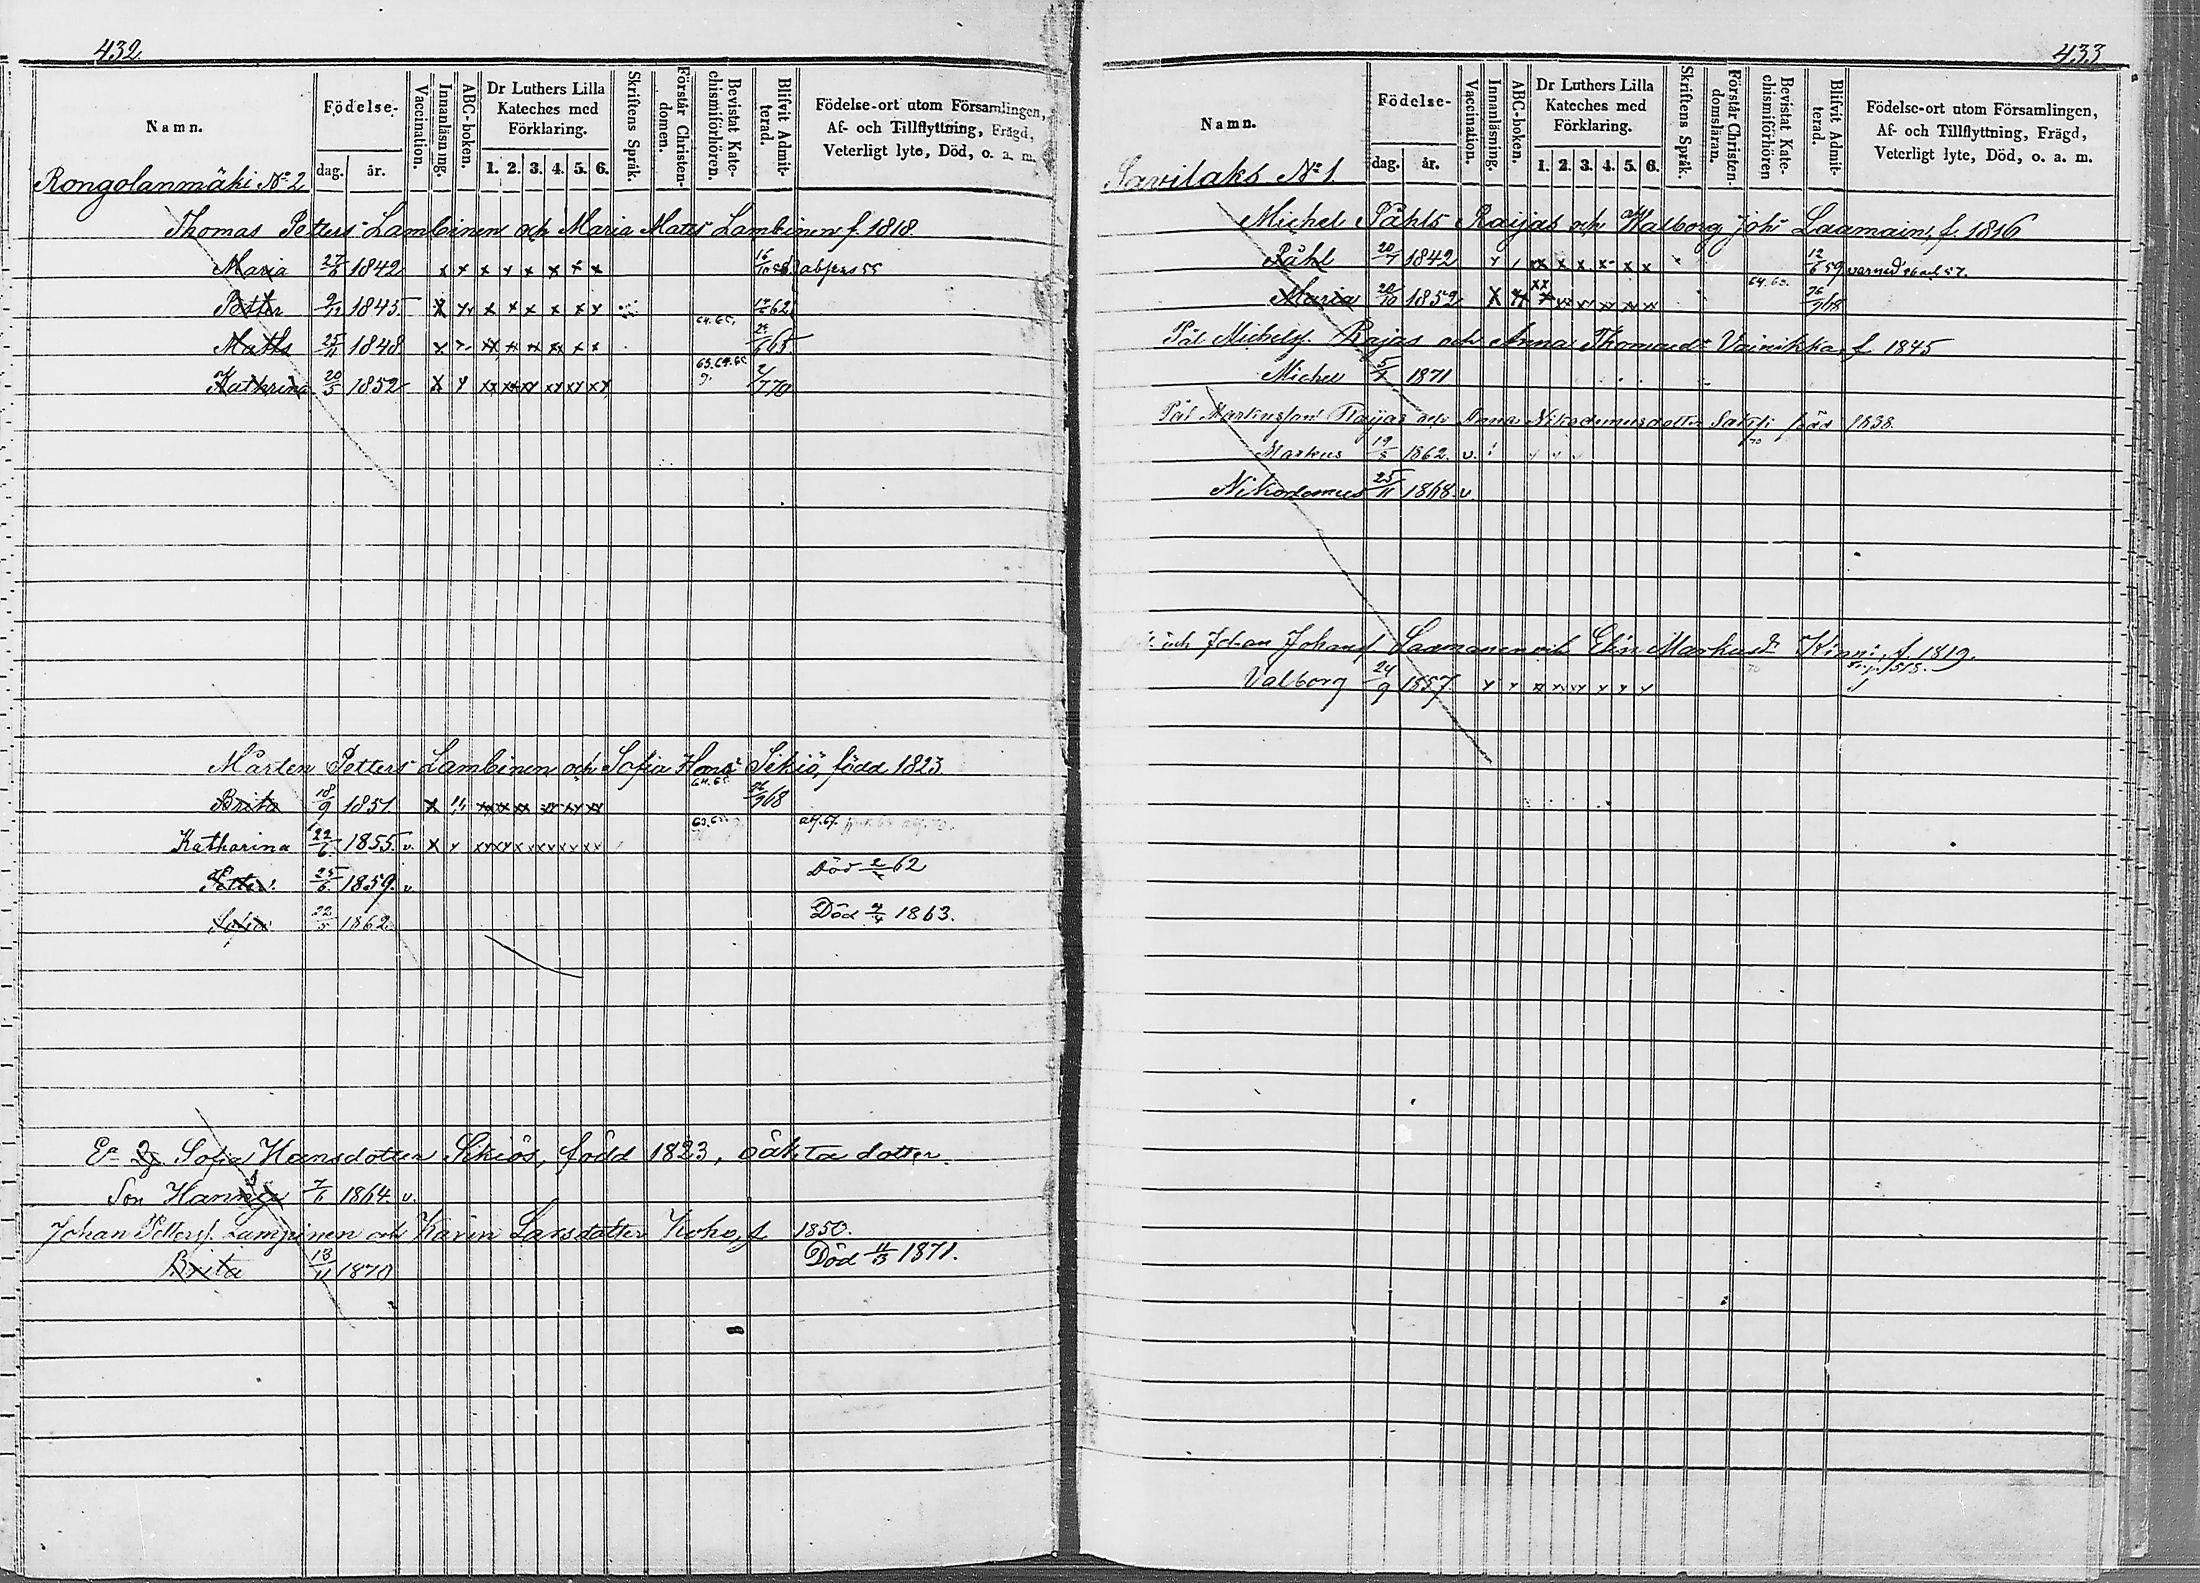 432
Namn.
Födelse-
dag. år.
Vaccination.
Innanläsning.
ABC-boken.
Dr Luthers Lilla Kateches med Förklaring.
1. 2. 3. 4. 5. 6.
Skriftens Språk.
Förstår Christendomen.
Bevistat Katechismiförhören.
Blifvit Admitterad.
Födelse-ort utom Församlingen, Af- och Tillflyttning, Frägd, Veterligt lyte, Död, o. a. m.
Rongolanmäki No 2
Thomas Petters Lambinen och Maria Mats Lambinen f. 1818.
Maria 27/6 1842 x x x x x x x x abfens 55
Petter 9/12 1845 x x x x x x x 62
Matts 25/11 1848 64.65. 65
Kathrina 20/3 1852 x y 63.64.65 2/7 70
Mårten Petters Lambinen och Sofia Hans Sikiö, född 1823
Brita 18/9 1851 64.65 68
Katharina 22/6 1855. v. x
Petter 25/6 1859. v. Död 62
Sofia 22/5 1862 Död 1863.
Ea Sofia Hansdotter Sikiös, född 1823, oäkta dotter.
Son Hannes 7/6 1864. v.
Johan Petterss. Lampinen och Karin Larsdotter Koho, f. 1850.
Brita 13/11 1870 Död 11/3 1871.
433
Namn.
Födelse-
dag. år.
Vaccination.
Innanläsning.
ABC-boken.
Dr Luthers Lilla Kateches med Förklaring.
1. 2. 3. 4. 5. 6.
Skriftens Språk.
Förstår Christendomsläran.
Bevistat Katechismiförhören
Blifvit Admitterad.
Födelse-ort utom Församlingen, Af- och Tillflyttning, Frägd, Veterligt lyte, Död, o. a. m.
Savilaks No 1.
Michel Påhls Raijas och Walborg Johs Laamain, f. 1816
Påhl 20/7 1842 12/6 59
Maria 20/10 1852 64.65. 68
Pål Michelss. Rajas och Anna Thomasdr Vainikka f. 1845
Michel 5/4 1871
Pål Markusson Raijas och Anna Nikodemusdotter född 1838
Markus 19/5 1862. v.
Nikodemus 25/11 1868. v
Johan Johans Saamanen och Elin Markusdr Kinni, f. 1819.
Valborg 24/9 1857.